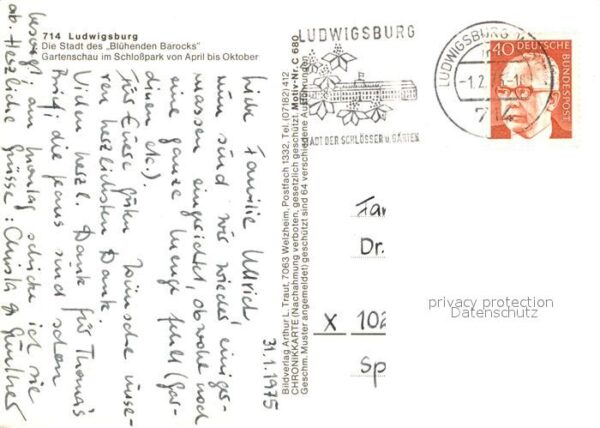 714 Ludwigsburg
Die Stadt des „Blühenden Barocks"
Gartenschau im Schloßpark von April bis Oktober
31.1.1975
Liebe Familie Ullrich,
nun sind wir wieder einiger-
massen eingerichtet, obwohl noch
eine ganze Menge fehlt (Gar-
dinen etc.).
Für Eure guten Wünsche unse-
ren herzlichsten Dank.
Vielen herzl. Dank für Thomas
Brief, die Jeans sind schon
besorgt, am Montag schicke ich sie
ab. Herzliche Grüsse: Christa & Günther
Bildverlag Arthur L. Traut, 7063 Welzheim, Postfach 1332, Tel. (07182) 412
CHRONIKKARTE (Nachahmung verboten, gesetzlich geschützt. Mobv-Nr. C 680
Geschm. Muster angemeldet) geschützt sind 64 verschiedene Ausführungen
LUDWIGSBURG
STADT DER SCHLÖSSER U. GÄRTEN
LUDWIGSBURG
-1.2.75-
714
40 DEUTSCHE
BUNDESPOST
Fam
Dr.
X 102
Sp
privacy protection
Datenschutz